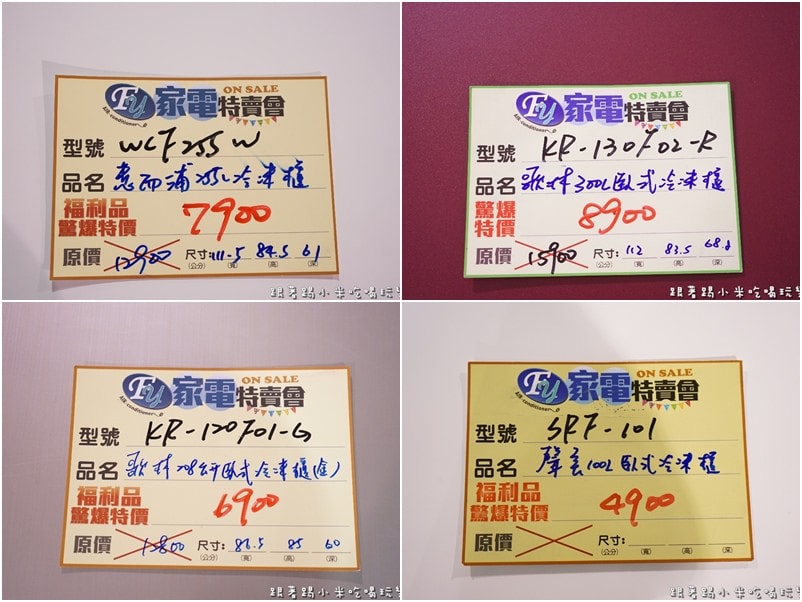 FU 家電特賣會 ON SALE
Air-conditioner
型號 WCF255W
品名 惠而浦255L冷凍櫃
福利品
驚爆特價 7900
原價 12900 尺寸: 111.5 84.5 61
(公分) (寬) (高) (深)
跟著踢小米吃喝玩樂
FU 家電特賣會 ON SALE
Air-conditioner
型號 KR-130F02-R
品名 歌林300L臥式冷凍櫃
驚爆
特價 8900
原價 15900 尺寸: 112 83.5 68.8
(公分) (寬) (高) (深)
跟著踢小米吃喝玩
FU 家電特賣會 ON SALE
Air-conditioner
型號 KR-120F01-G
品名 歌林208公升臥式冷凍櫃(金)
福利品
驚爆特價 6900
原價 13800 尺寸: 82.5 85 60
(公分) (寬) (高) (深)
跟著踢小米吃喝玩
FU 家電特賣會 ON SALE
Air-conditioner
型號 SRF-101
品名 聲寶100L臥式冷凍櫃
福利品
驚爆特價 4900
原價 尺寸:
(公分) (寬) (高) (深)
跟著踢小米吃喝玩